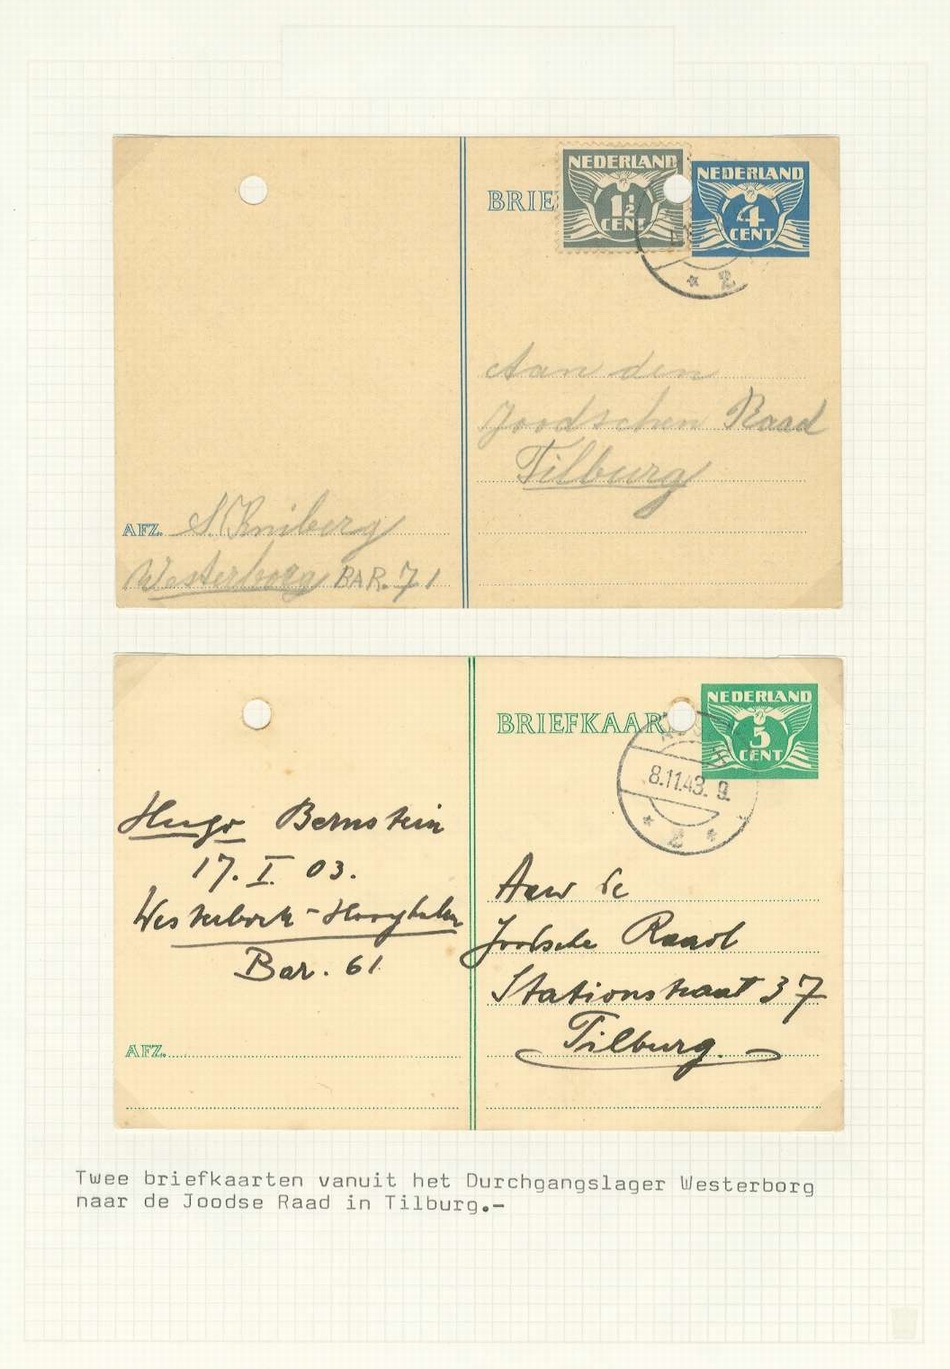 NEDERLAND
1½
CENT
NEDERLAND
4
CENT
BRIE
2
Aan den
Joodschen Raad
Tilburg
AFZ. S. Kniberg
Westerborg BAR. 71
BRIEFKAAR
NEDERLAND
5
CENT
8.11.43. 9.
2
Hugo Bernstein
17. I. 03.
Westerbork - Hooghalen
Bar. 61
Aan de
Joodsche Raad
Stationstraat 37
Tilburg.
AFZ.
Twee briefkaarten vanuit het Durchgangslager Westerborg
naar de Joodse Raad in Tilburg.-